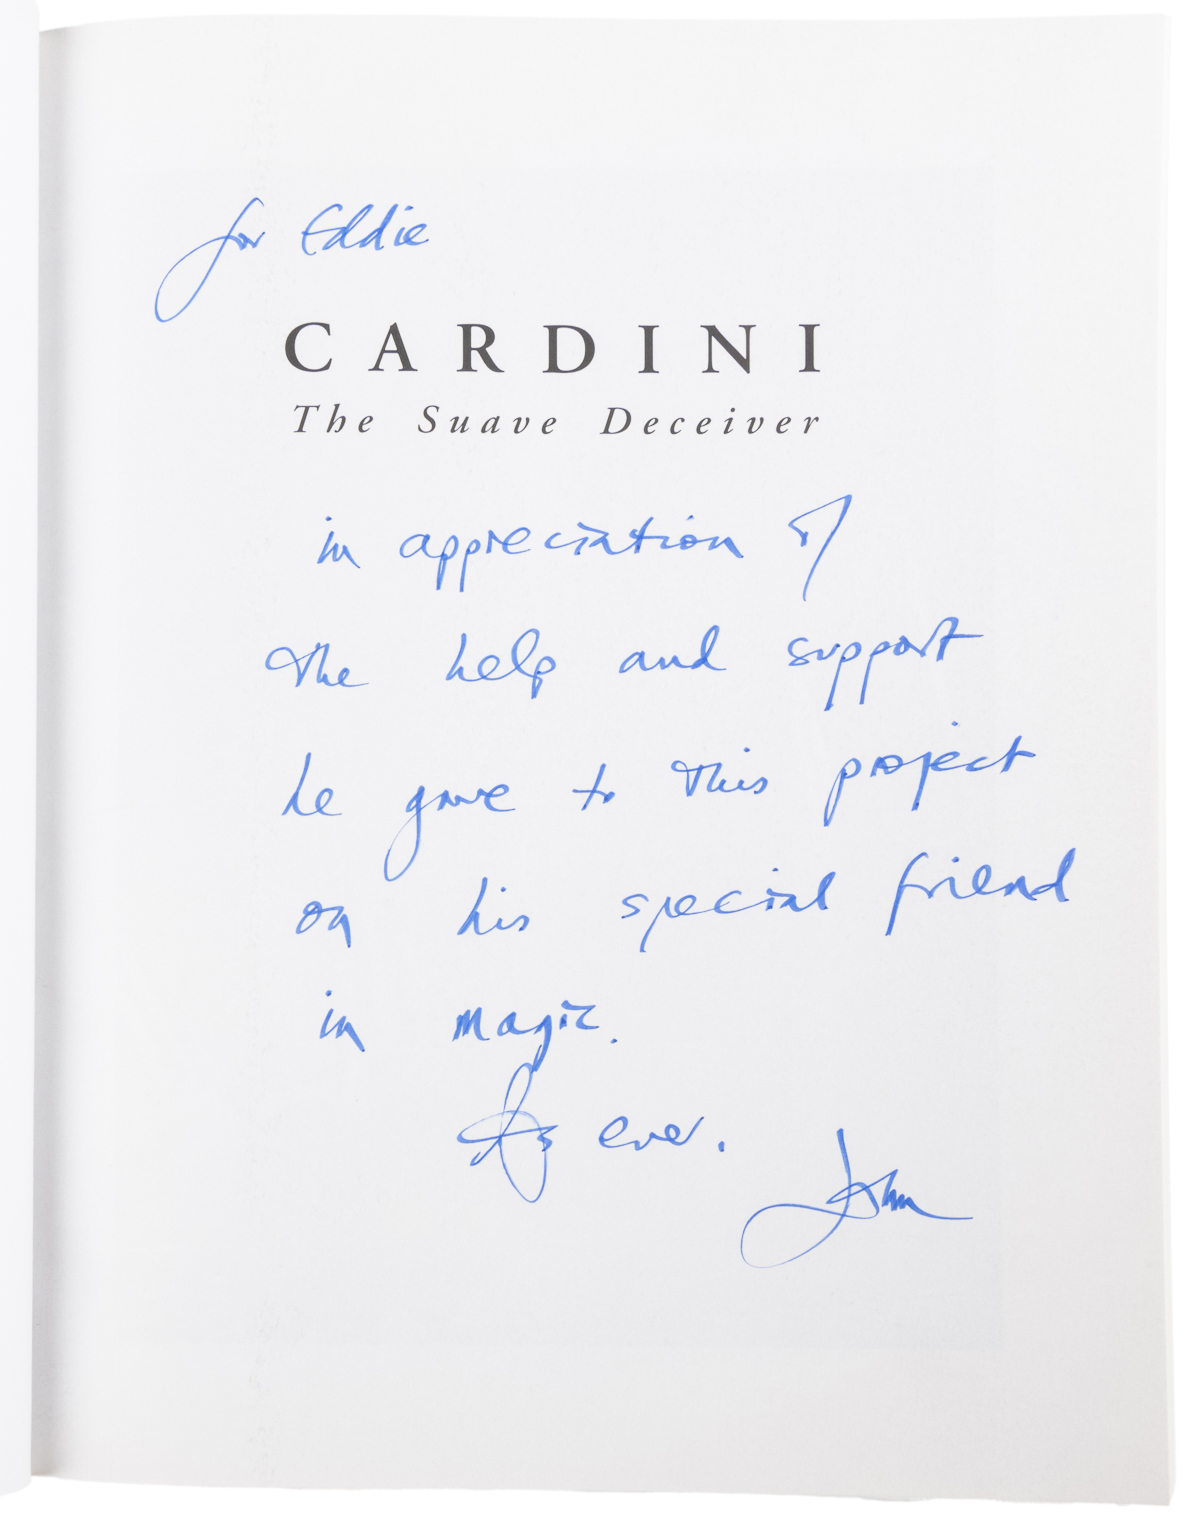 for Eddie
CARDINI
The Suave Deceiver
in appreciation of
the help and support
he gave to this project
on his special friend
in magic.
As ever.
John